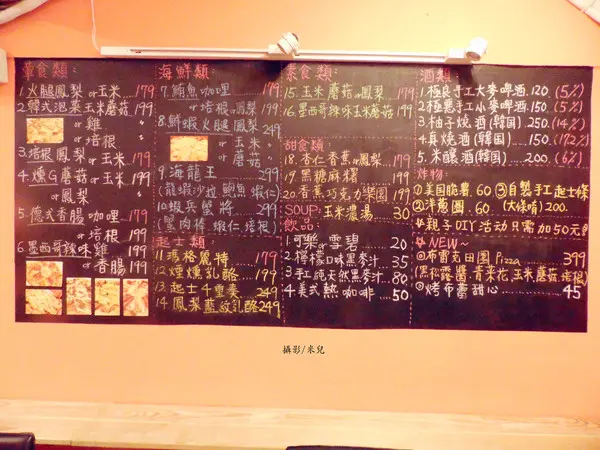 葷食類:
1.火腿鳳梨or玉米...179
2.韓式泡菜玉米蘑菇199
or 雞 〃
or 培根 〃
3.培根鳳梨or玉米179
4.燻G蘑菇or玉米199
or鳳梨
5.德式香腸咖哩179
or培根199
6.墨西哥辣味雞199
or香腸199
海鮮類:
7.鮪魚咖哩...179
or培根or鳳梨199
8.鮮蝦火腿鳳梨249
or玉米 〃
or蘑菇 〃
9.海龍王...299
(龍蝦沙拉 鮪魚 蝦仁)
10.蝦兵蟹將...299
(蟹肉棒 蝦仁 培根)
起士類:
11.瑪格麗特...179
12.煙燻乳酪...199
13.起士4重奏...249
14.鳳梨藍紋乳酪249
素食類:
15.玉米蘑菇or鳳梨179
16.墨西哥辣味玉米蘑菇199
甜食類:
18.杏仁香蕉or鳳梨179
19.黑糖麻糬...199
20.香蕉巧克力樂園199
SOUP:玉米濃湯...30
飲品:
1.可樂or雪碧...20
2.檸檬口味黑麥汁...35
3.手工純天然黑麥汁...80
4.美式熱咖啡...50
酒類:
1.極良手工大麥啤酒.120.(5%)
2.極惡手工小麥啤酒.150.(5%)
3.柚子燒酒(韓国)250.(14%)
4.真燒酒(韓国)150.(17.2%)
5.米釀酒(韓国)200.(6%)
炸物:
①美国脆薯.60 ③自製手工起士條
②洋蔥圈.60 (大條唷)200.
#親子DIY活动只需加50元!
#NEW~
@布雷克田園Pizza...399
(黑松露醬.青花菜.玉米蘑菇.培根)
@烤布蕾甜心...45
攝影/米兒